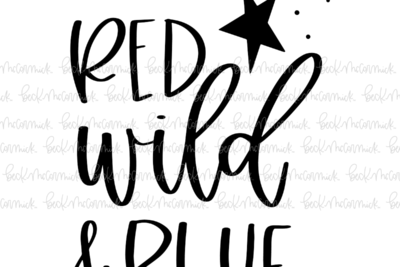 RED
wild
& BLUE